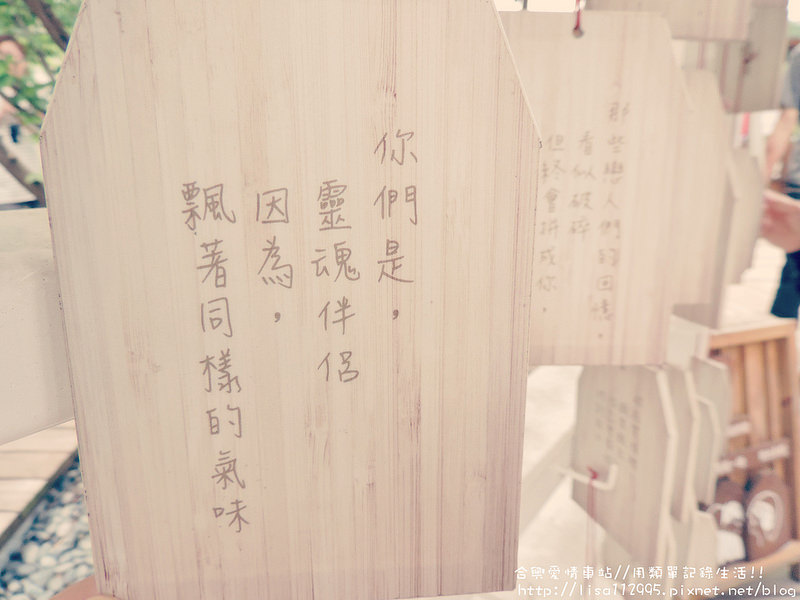 你們是，
靈魂伴侶
因為，
飄著同樣的氣味
那些戀人們的回憶，
看似破碎
但終會拼成你，
合興愛情車站//用類單記錄生活!!
http://lisa112995.pixnet.net/blog